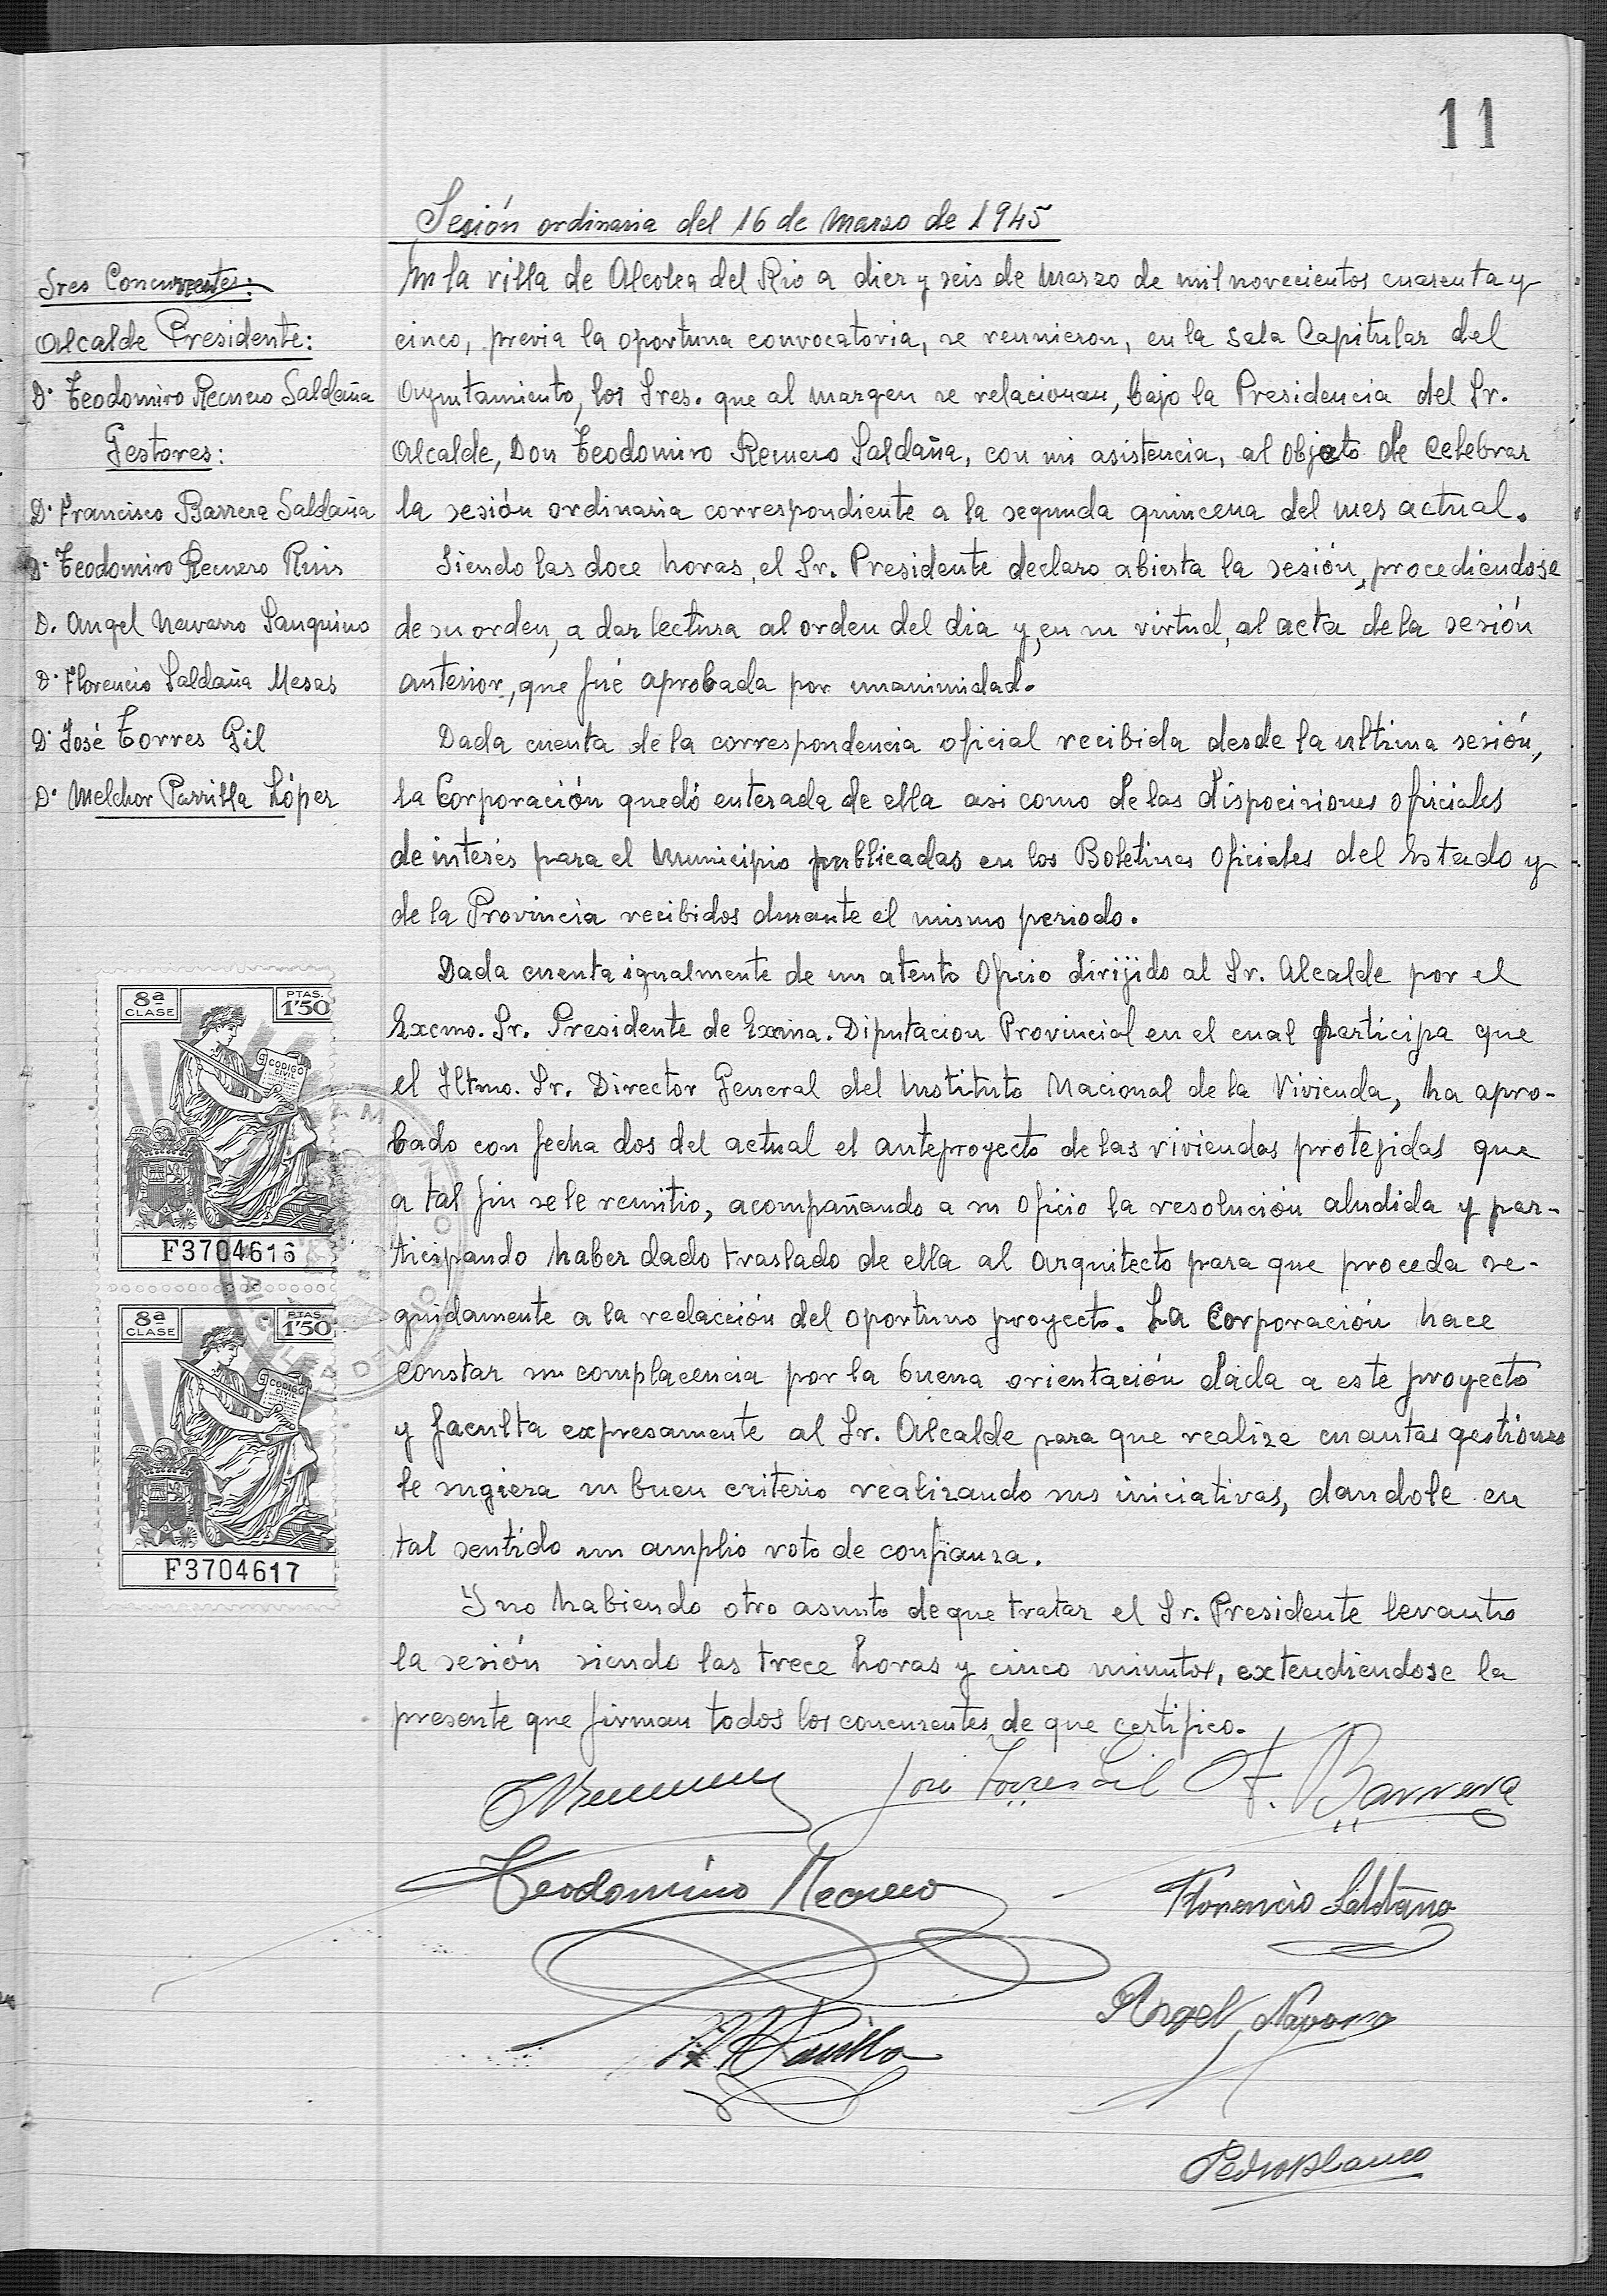 11
Sesión ordinaria del 16 de Marzo de 1945
Sres Concurrentes:
Alcalde Presidente:
Dⁿ Teodomiro Recuero Saldaña
Gestores:
Dⁿ Francisco Barrera Saldaña
Dⁿ Teodomiro Recuero Ruiz
D. Angel Navarro Sanguino
Dⁿ Florencio Saldaña Mesas
Dⁿ José Torres Gil
Dⁿ Melchor Parrilla López
En la villa de Alcolea del Rio a diez y seis de Marzo de mil novecientos cuarenta y
cinco, previa la oportuna convocatoria, se reunieron, en la Sala Capitular del
Ayuntamiento, los Sres. que al margen se relacionan, bajo la Presidencia del Sr.
Alcalde, Don Teodomiro Recuero Saldaña, con mi asistencia, al objeto de celebrar
la sesión ordinaria correspondiente a la segunda quincena del mes actual.
Siendo las doce horas, el Sr. Presidente declaro abierta la sesión, procediéndose
de su orden, a dar lectura al orden del dia y, en su virtud, al acta de la sesión
anterior, que fué aprobada por unanimidad.
Dada cuenta de la correspondencia oficial recibida desde la ultima sesión,
la Corporación quedó enterada de ella asi como de las dispociciones oficiales
de interés para el Municipio publicadas en los Boletines Oficiales del Estado y
de la Provincia recibidos durante el mismo periodo.
Dada cuenta igualmente de un atento Oficio dirijido al Sr. Alcalde por el
Excmo. Sr. Presidente de Exma. Diputacion Provincial en el cual participa que
el Iltmo. Sr. Director General del Instituto Nacional de la Vivienda, ha apro-
bado con fecha dos del actual el anteproyecto de las viviendas protegidas que
a tal fin se le remitio, acompañando a su oficio la resolución aludida y par-
ticipando haber dado traslado de ella al Arquitecto para que proceda se-
guidamente a la redacción del oportuno proyecto. La Corporación hace
constar su complacencia por la buena orientación dada a este proyecto
y faculta expresamente al Sr. Alcalde para que realize cuantas gestiones
le sugiera su buen criterio realizando sus iniciativas, dandole en
tal sentido un amplio voto de confianza.
Y no habiendo otro asunto de que tratar el Sr. Presidente levanto
la sesión siendo las trece horas y cinco minutos, extendiendose la
presente que firman todos los concurrentes de que certifico.
8ª CLASE
PTAS. 1'50
CODIGO CIVIL
F3704616
8ª CLASE
PTAS. 1'50
CODIGO CIVIL
F3704617
José Torres Gil
F. Barrera
Teodomiro Recuero
Florencio Saldaña
Angel Navarro
M Parrilla
Pedro Blanco